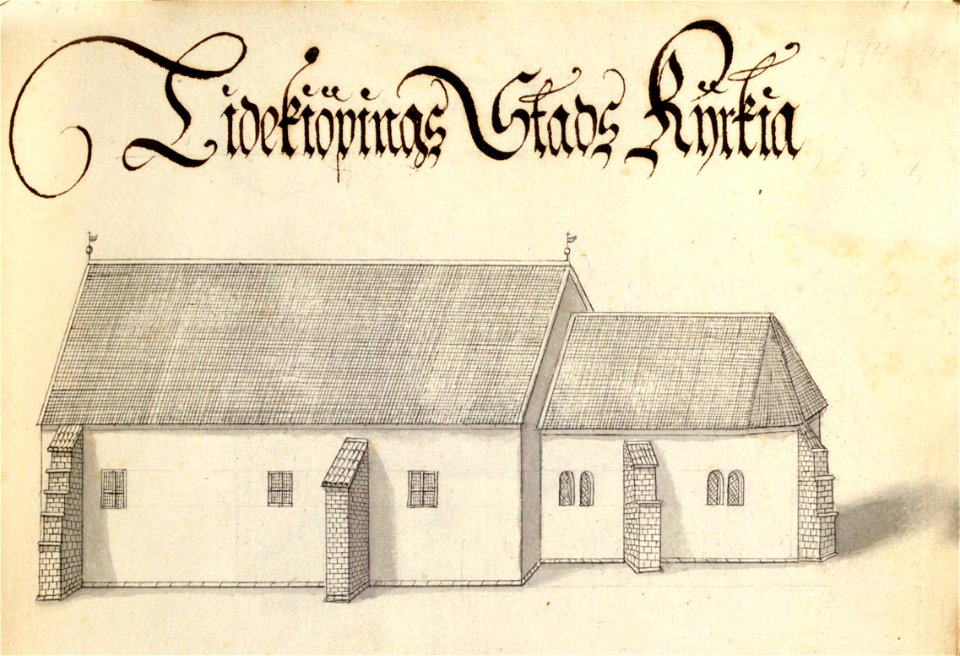 Tidekiöpings Stads Kÿrkia